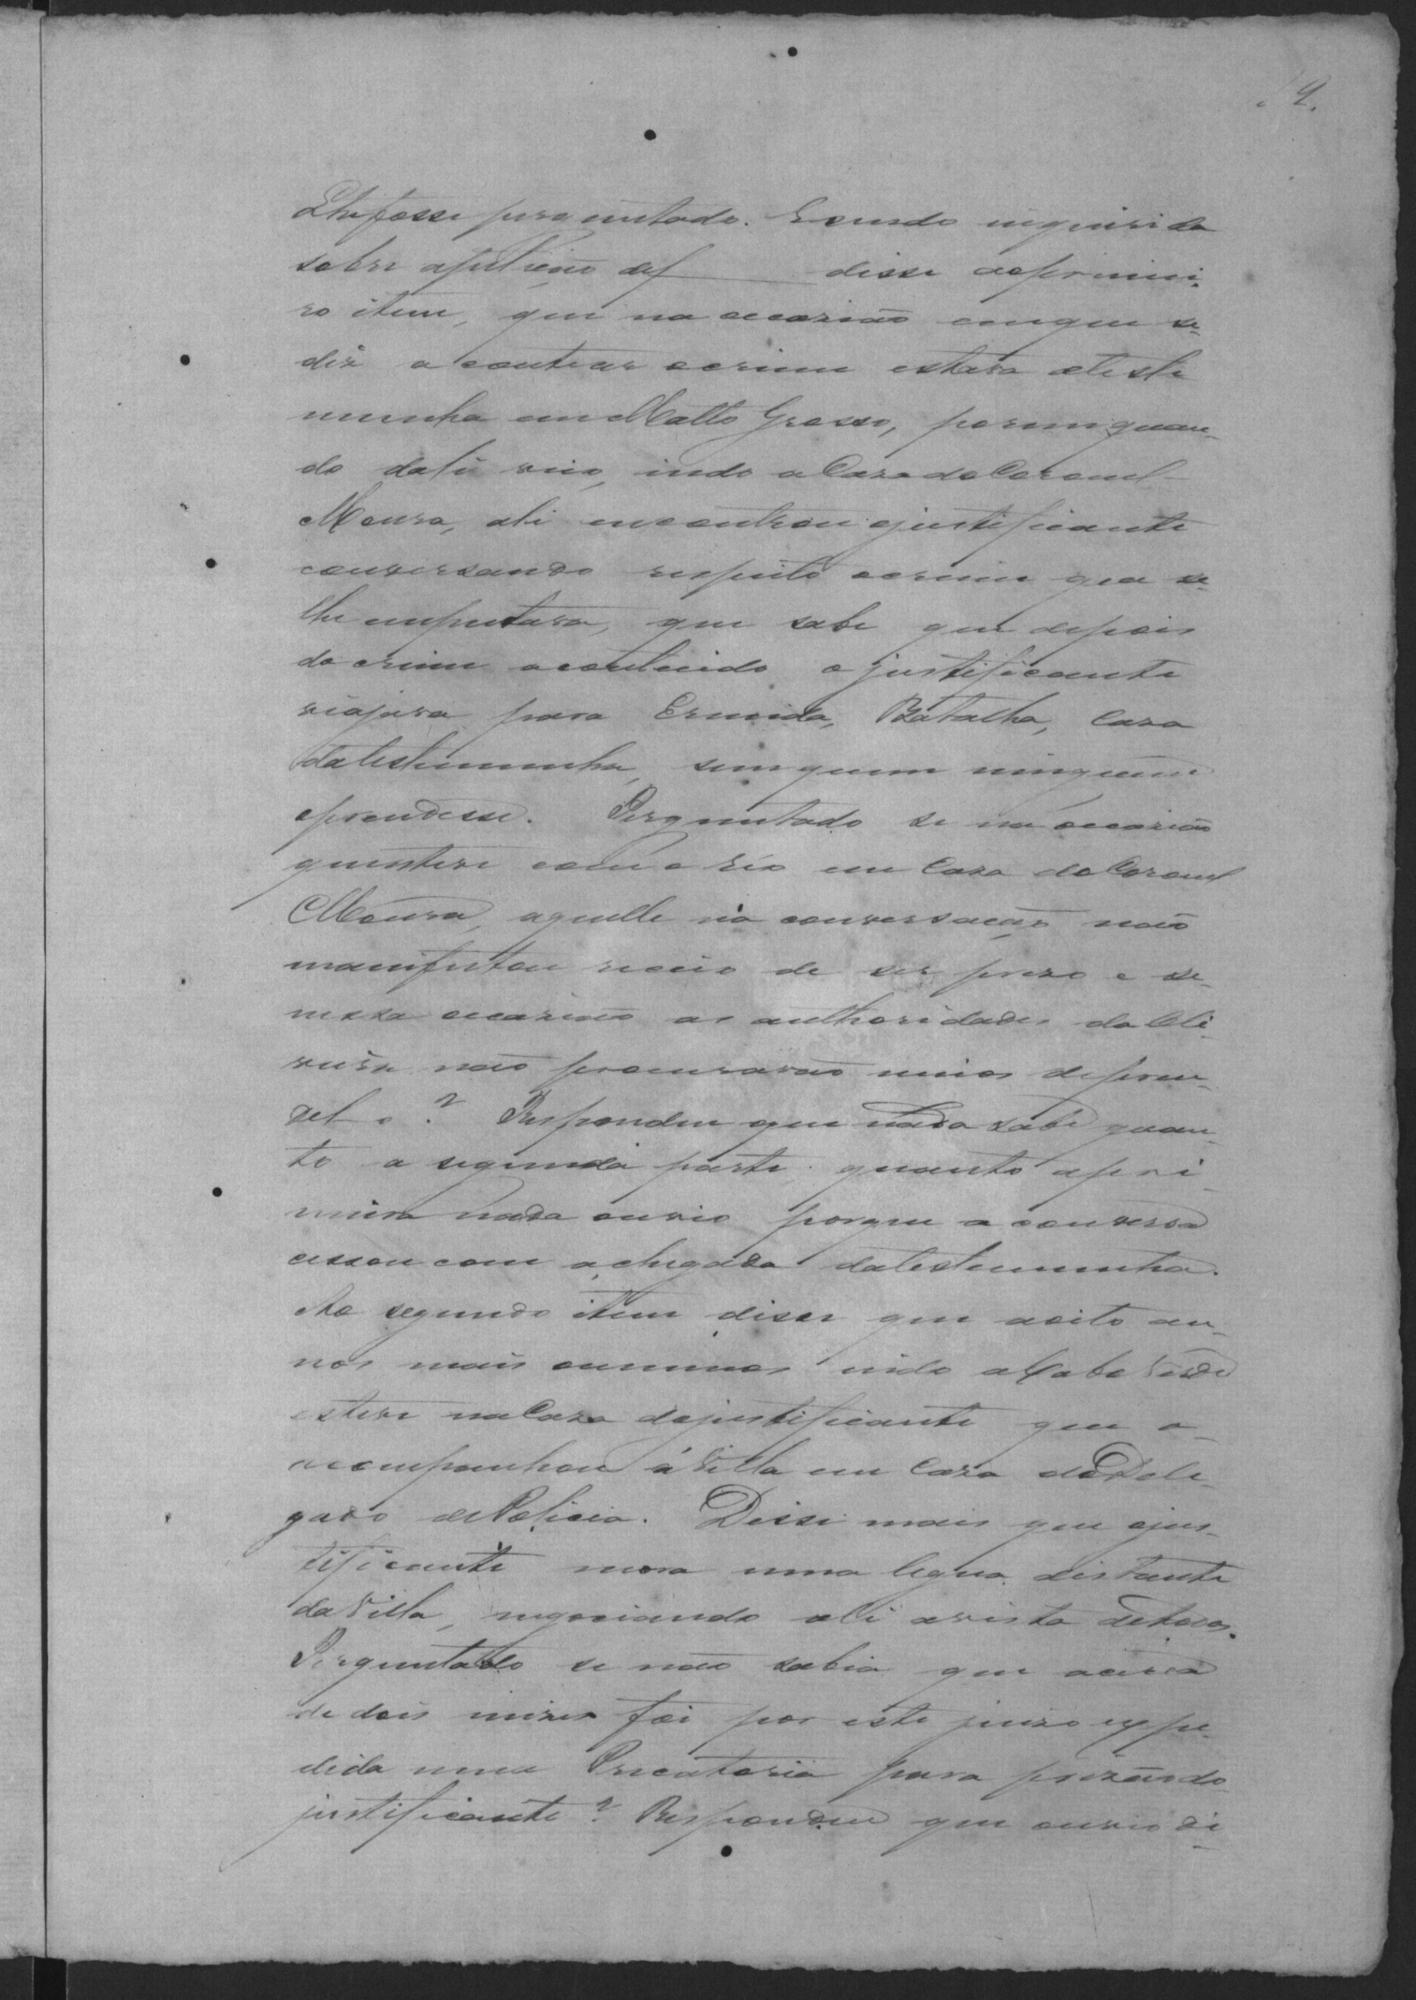 9.
lhe fosse perguntado. E sendo inquirida
sobre a petição de f disse ao primei-
ro item, que na occazião em que se
diz acontecer o crime estava a teste
munha em Matto Grosso, porem quan-
do dali veio, indo a Caza do Coronel
Moura, ali encontrou o justificante
conversando respeito o crime que se
lhe imputava, que sabe que depois
do crime acontecido o justificante
viajava para Ermida, Batalha, Caza
da testemunha, sem que ninguem
o prendesse. Perguntado se na occazião
que esteve com o réo em Caza do Coronel
Moura, aquelle na conversação não
manifestou receio de ser prezo e se
nessa occazião as authoridades da Oli-
veira não procurarão meios de pren-
del-o? Respondeu que nada sabe quan-
to a segunda parte quanto a pri-
meira nada ouvio porque a conversa
cessou com a chegada da testemunha.
Ao segundo item disse que a oito an-
nos mais ou menos indo a Cabo Verde
esteve na Caza do justificante que o
acompanhou á Villa em Caza do Dele-
gado de Policia. Disse mais que o jus-
tificante mora uma legua distante
da Villa, negociando ali a vista de todos.
Perguntado se não sabia que acerca
de dois mezes foi por este juizo expe-
dida uma Precatoria para prizão do
justificante? Respondeu que ouvio di-